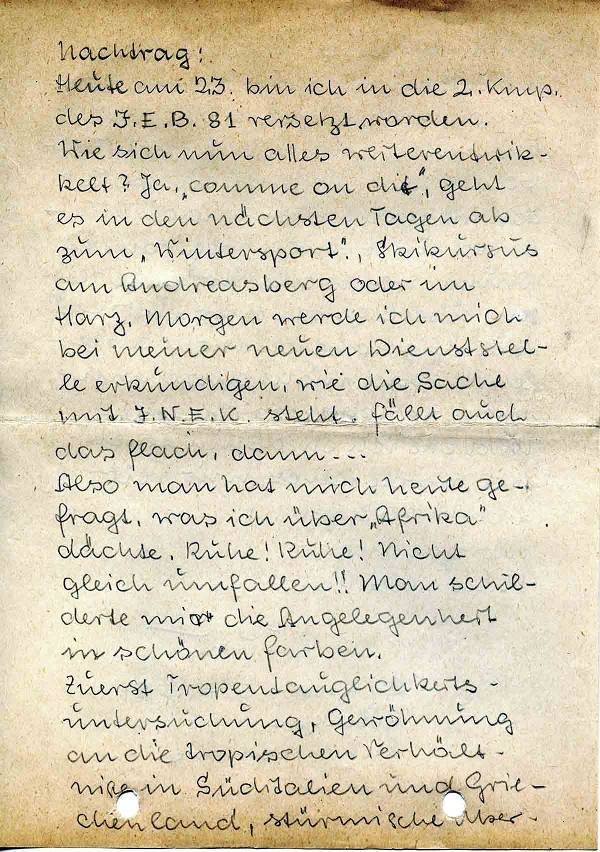 Nachtrag:
Heute am 23. bin ich in die 2. Kmp.
des J.E.B. 81 versetzt worden.
Wie sich nun alles weiterentwik-
kelt? Ja, „comme on dit“, geht
es in den nächsten Tagen ab
zum „Wintersport“, Skikursus
am Andreasberg oder im
Harz. Morgen werde ich mich
bei meiner neuen Dienststel-
le erkundigen, wie die Sache
mit J.N.E.K. steht, fällt auch
das flach, dann ---
Also man hat mich heute ge-
fragt, was ich über „Afrika“
dächte. Ruhe! Ruhe! Nicht
gleich umfallen!! Man schil-
derte mir die Angelegenheit
in schönen Farben.
Zuerst Tropentauglichkeits-
untersuchung, Gewöhnung
an die tropischen Verhält-
niße in Süditalien und Grie-
chenland, stürmische Über-